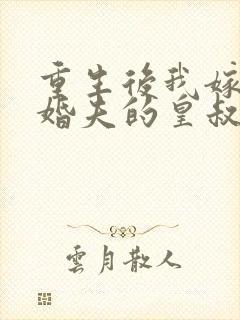 重生後我嫁
婚夫的皇叔
雲月散人